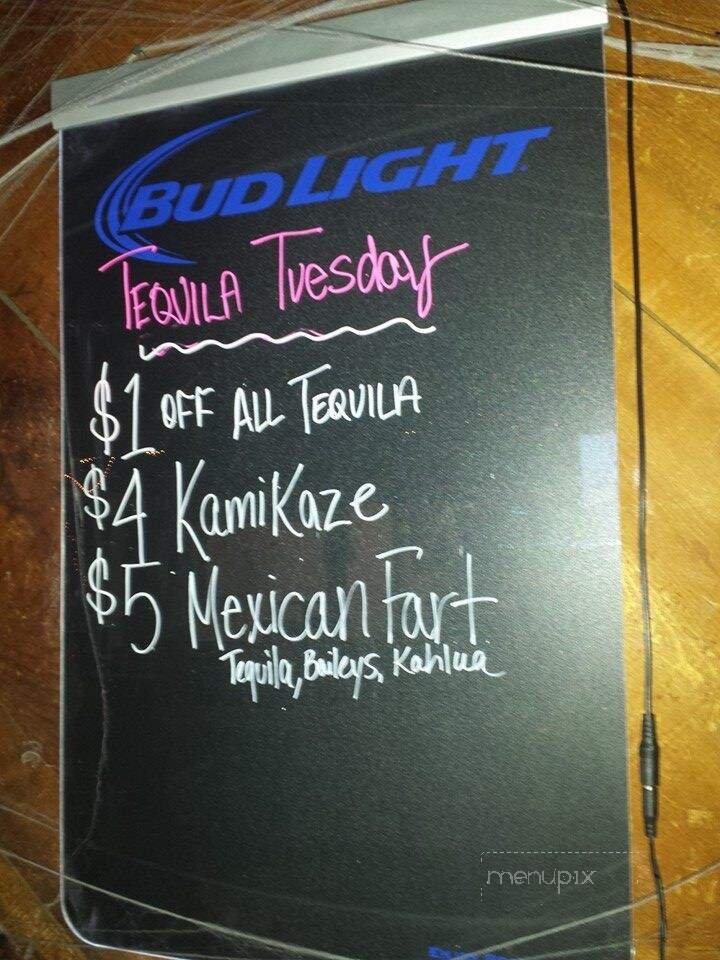 BUD LIGHT
TEQUILA Tuesday
$1 OFF ALL TEQUILA
$4 Kamikaze
$5 Mexican Fart
Tequila, Baileys, Kahlua
menupix